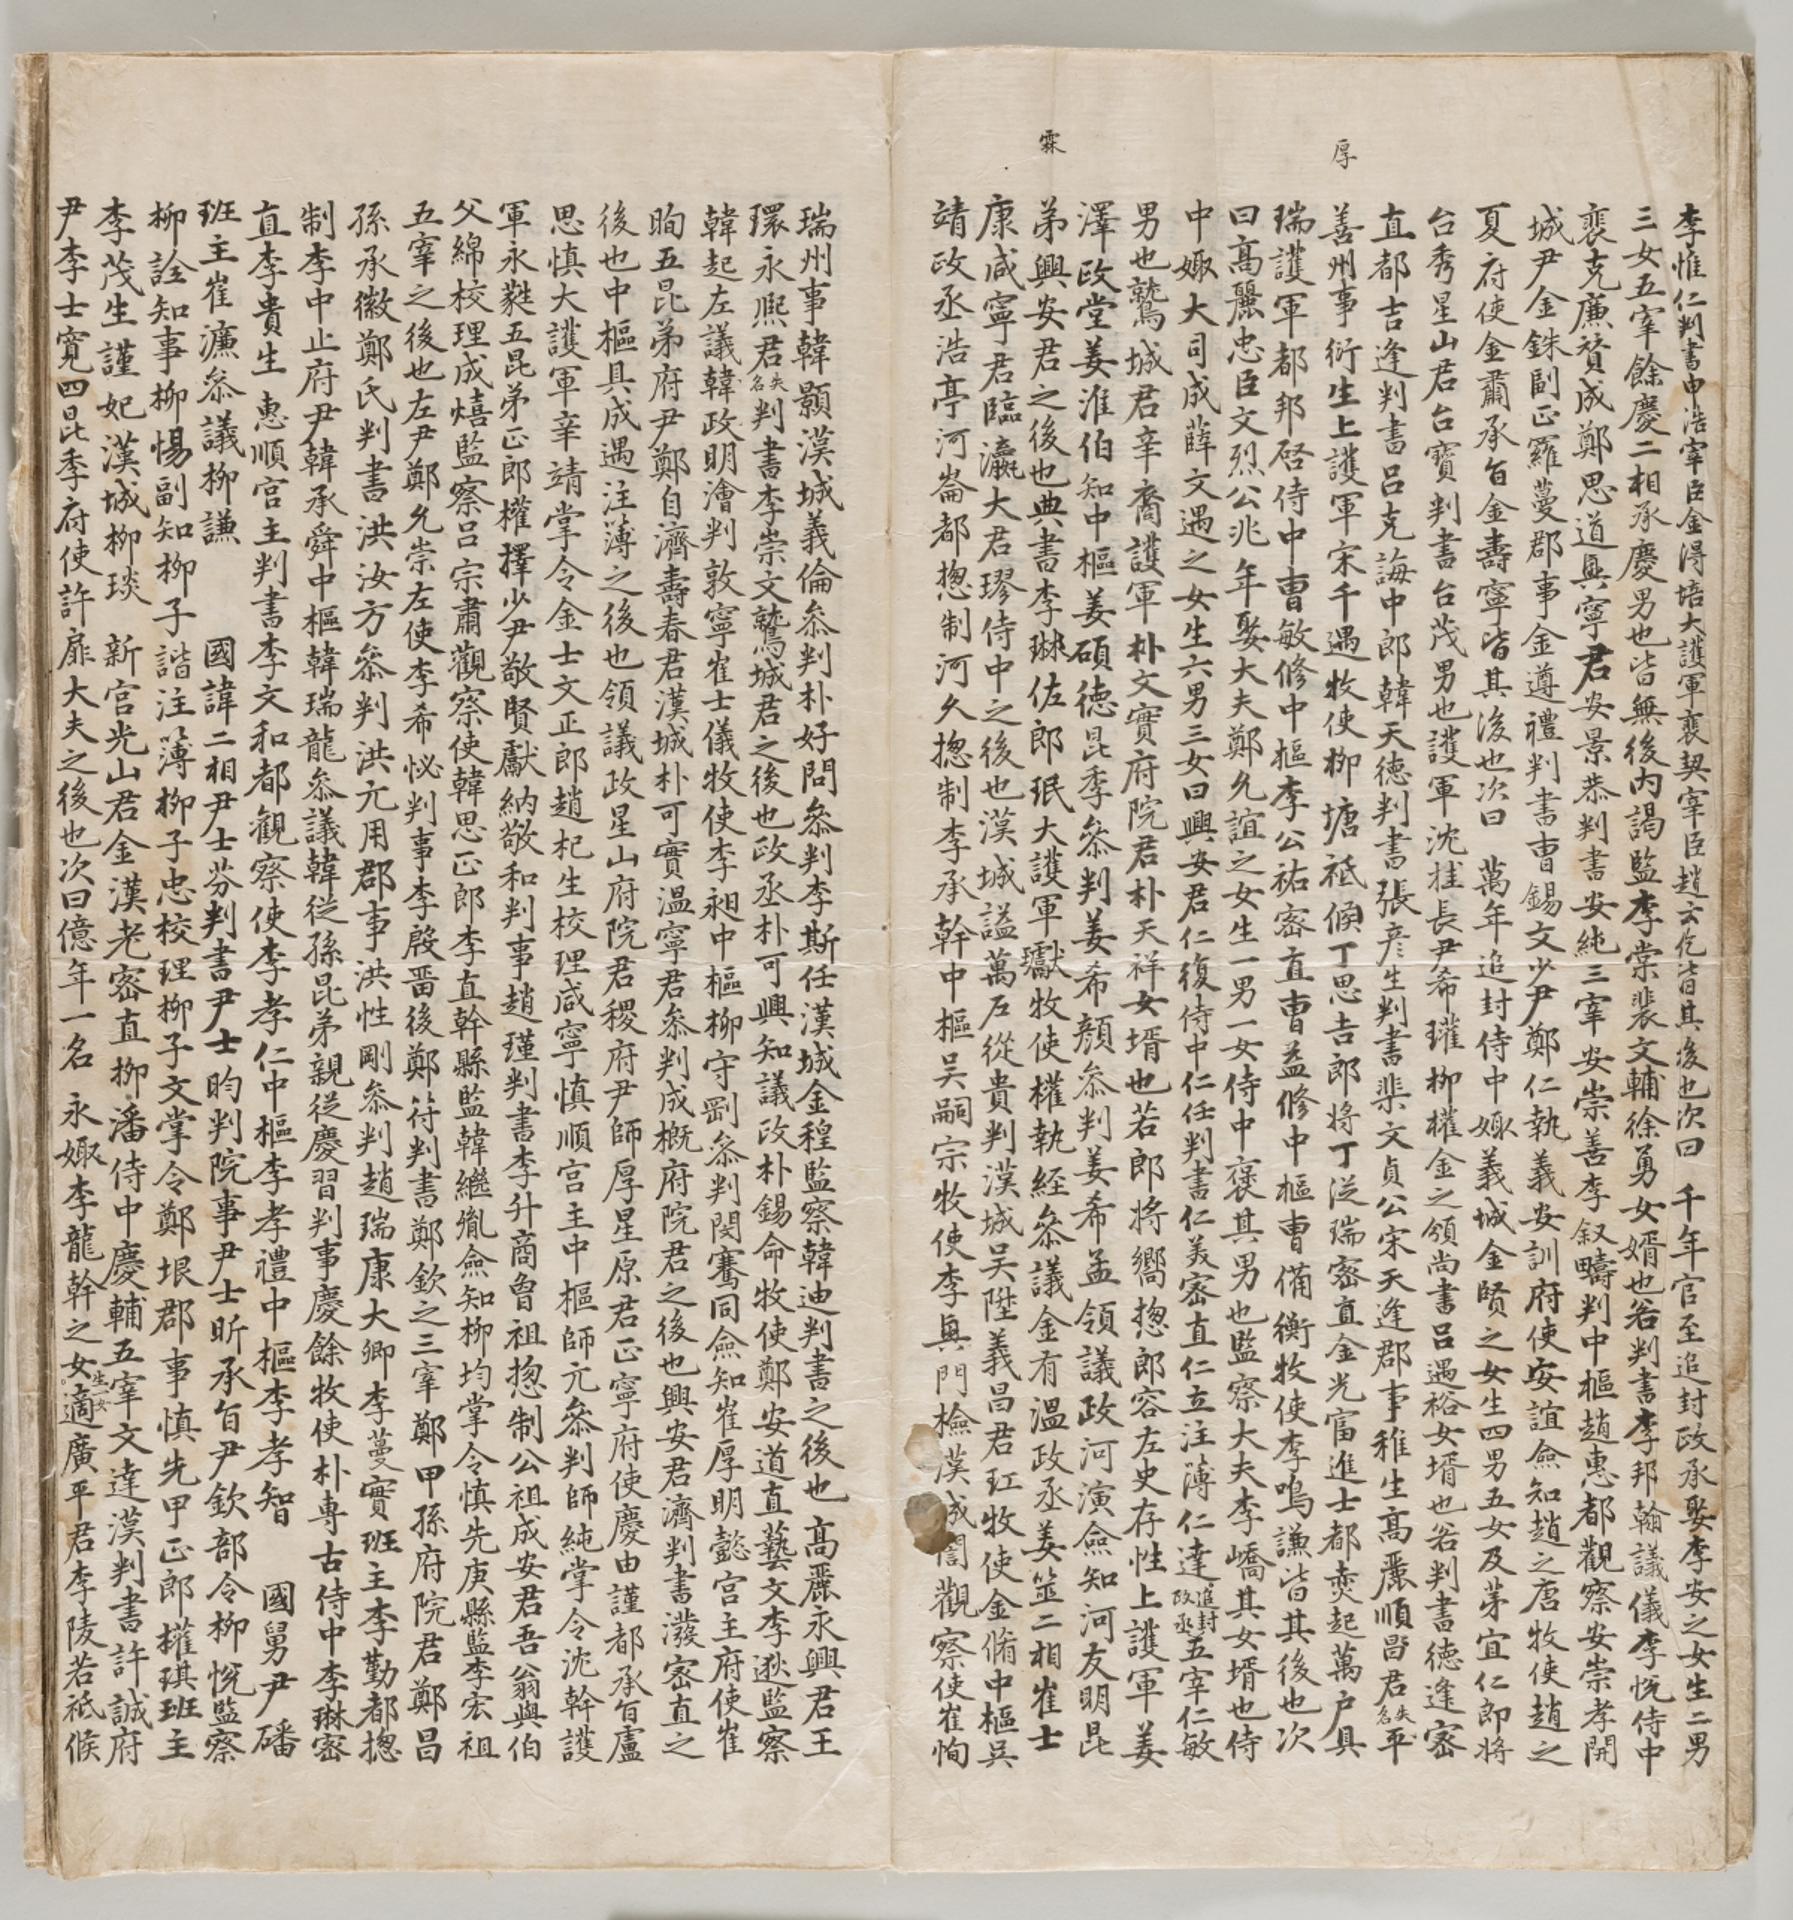 厚
霖
李惟仁判書申浩宰臣金得培大護軍裵契宰臣趙云仡皆其後也次曰 千年官至追封政承娶李安之女生二男
三女五宰餘慶二相承慶男也皆無後內謁監李棠裴文輔徐勇女婿也若判書李邦翰議儀李悅侍中
裵克廉贊成鄭思道興寧君安景恭判書安純三宰安崇善李叙疇判中樞趙惠都觀察安崇孝開
城尹金銖副正羅蔓郡事金遵禮判書曹錫文少尹鄭仁執義安訓府使安誼僉知趙之唐牧使趙之
夏府使金肅承旨金壽寧皆其後也次曰 萬年追封侍中娵義城金賢之女生四男五女及苐宜仁郎將
台秀星山君台寶判書台茂男也護軍沈挂長尹希璀柳權金之領尚書呂遇裕女壻也若判書德逢密
直都吉逢判書呂克誨中郎韓天德判書張彦生判書裴文貞公宋天逢郡事稚生高麗順昌君失名平
善州事衍生上護軍宋千遇牧使柳塘祗候丁思吉郎將丁泛瑞密直金光富進士都奭起萬户具
瑞護軍都邦啓侍中曹敏修中樞李公祐密直曹益修中樞曹備衡牧使李鳴謙皆其後也次
曰高麗忠臣文烈公兆年娶大夫鄭允誼之女生一男一女侍中褒其男也監察大夫李嶠其女壻也侍
中娵大司成薛文遇之女生六男三女曰興安君仁復侍中仁任判書仁美密直仁立注簿仁達追封政丞五宰仁敏
男也鷲城君辛裔護軍朴文實府院君朴天祥女壻也若郎將嚮揔郎容左史存性上護軍姜
澤政堂姜淮伯知中樞姜碩德昆季叅判姜希顔叅判姜希孟領議政河演僉知河友明昆
弟興安君之後也典書李琳佐郎珉大護軍瓛牧使權執經叅議金有溫政丞姜筮二相崔士
康咸寧君臨瀛大君璆侍中之後也漢城謚萬石從貴判漢城吳陞義昌君玒牧使金脩中樞吳
靖政丞浩亭河崙都揔制河久揔制李承幹中樞吳嗣宗牧使李興門檢漢城誾觀察使崔恂
瑞州事韓顥漢城義倫叅判朴好問叅判李斯任漢城金䅣監察韓迪判書之後也高麗永興君王
環永熈君失名判書李崇文鷲城君之後也政丞朴可興知議政朴錫命牧使鄭安道直藝文李逖監察
韓起左議韓政明澮判敦寧崔士儀牧使李昶中樞柳守剛叅判閔騫同僉知崔厚明懿宮主府使崔
昫五昆弟府尹鄭自濟壽春君漢城朴可實溫寧君叅判成槪府院君之後也興安君濟判書潑密直之
後也中樞具成遇注薄之後也領議政星山府院君稷府尹師厚星原君正寧府使慶由謹都承旨盧
思慎大護軍辛靖掌令金士文正郎趙杞生校理咸寧慎順宮主中樞師元叅判師純掌令沈幹護
軍永蕤五昆弟正郎權擇少尹敬賢獻納敬和判事趙瑾判書李升商曾祖揔制公祖成安君吾翁與伯
父綿校理成熺監察呂宗肅觀察使韓思正郎李直幹縣監韓繼胤僉知柳均掌令慎先庚縣監李宏祖
五宰之後也左尹鄭允崇左使李希怭判事李殷啚後鄭符判書鄭欽之三宰鄭甲孫府院君鄭昌
孫承徽鄭氏判書洪汝方叅判洪元用郡事洪性剛叅判趙瑞康大卿李蔓實班主李勤都揔
制李中止府尹韓承舜中樞韓瑞龍叅議韓從孫昆弟親從慶習判事慶餘牧使朴專古侍中李琳密
直李貴生 惠順宮主判書李文和都觀察使李孝仁中樞李孝禮中樞李孝智 國舅尹磻
班主崔濂叅議柳謙 國諱二相尹士芬判書尹士昀判院事尹士昕承旨尹欽部令柳悅監察
柳詮知事柳惕副知柳子諧注簿柳子忠校理柳子文掌令鄭垠郡事慎先甲正郎權琪班主
李茂生謹妃漢城柳琰 新宮光山君金漢老密直柳潘侍中慶輔五宰文達漢判書許誠府
尹李士寬四昆季府使許扉大夫之後也次曰億年一名 永娵李龍幹之女生一女適廣平君李陵若祗候